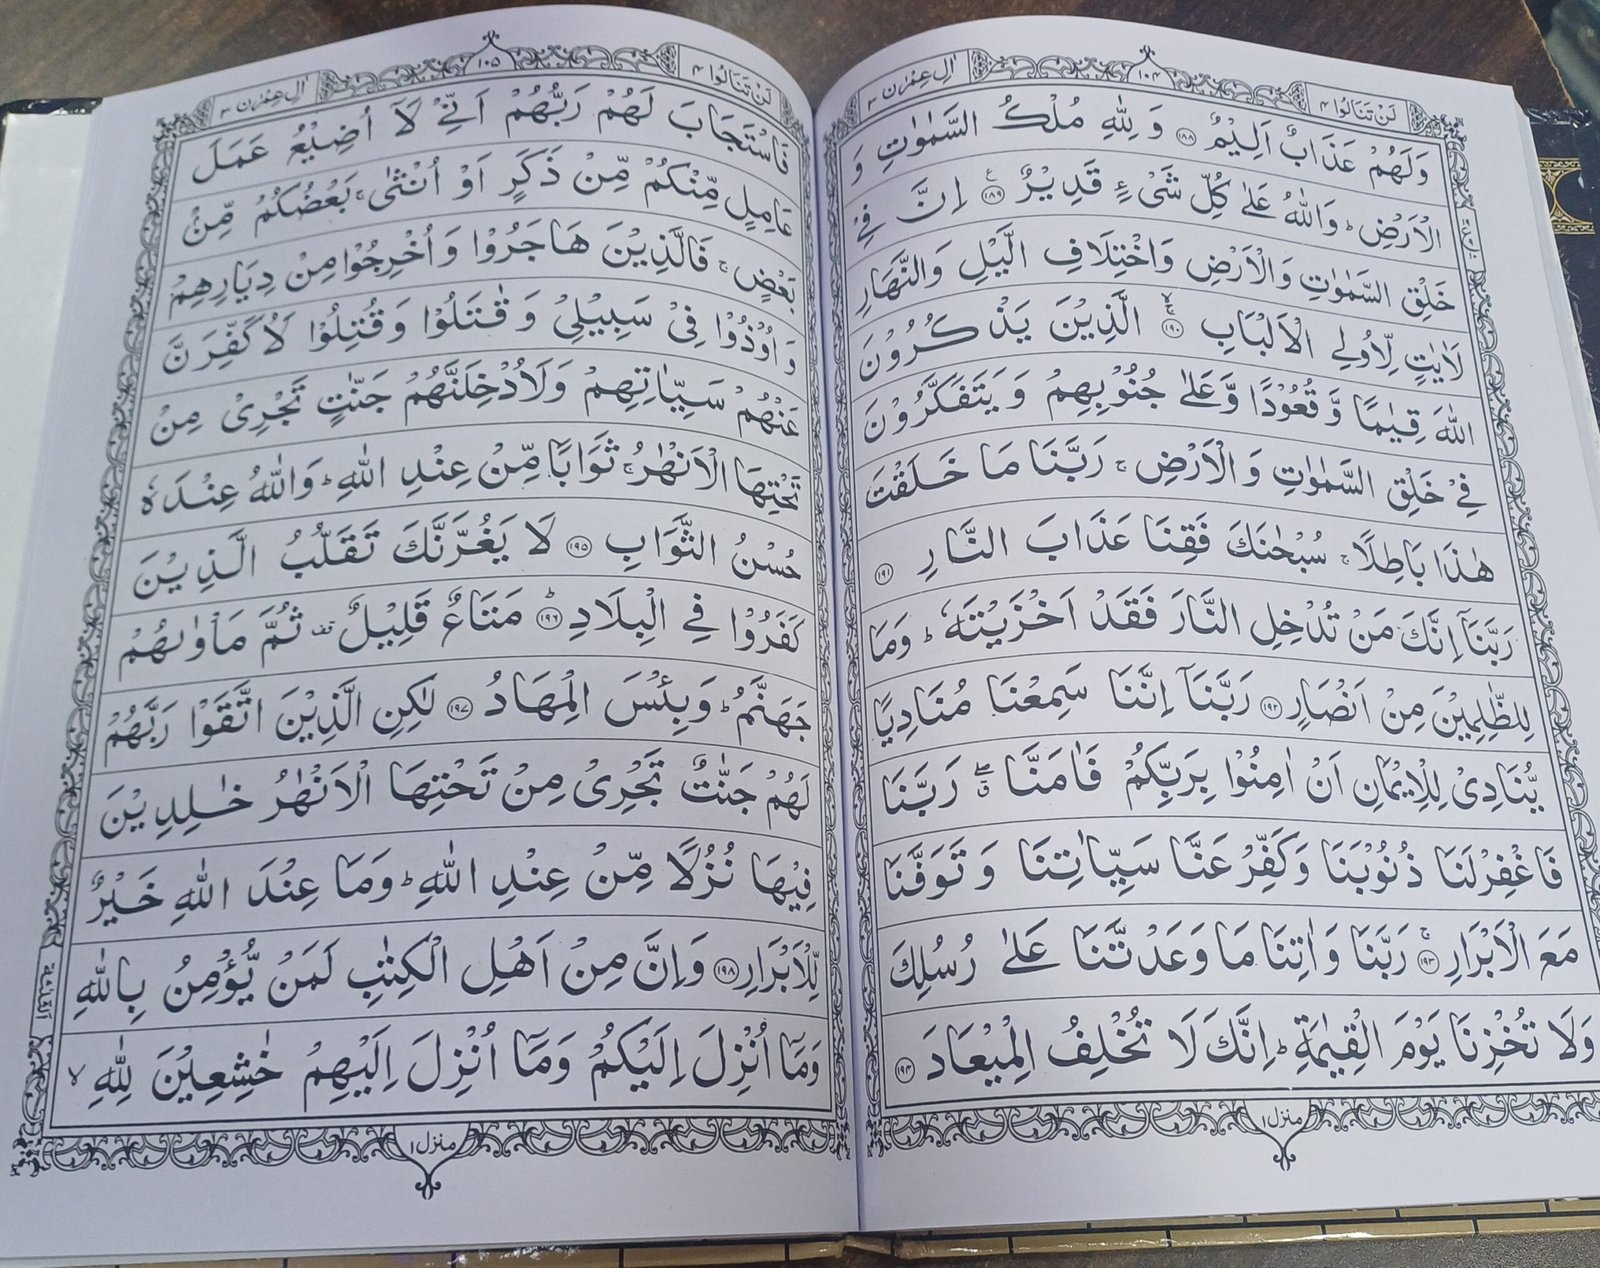 لَنْ تَنَالُوا ۴
۱۰۴
اٰلِ عِمْرٰن ۳
وَلَهُمْ عَذَابٌ اَلِيْمٌ ﴿۱۸۸﴾ وَ لِلّٰهِ مُلْكُ السَّمٰوٰتِ وَ
الْاَرْضِ ؕ وَاللّٰهُ عَلٰى كُلِّ شَىْءٍ قَدِيْرٌ ﴿۱۸۹﴾ اِنَّ فِىْ
خَلْقِ السَّمٰوٰتِ وَالْاَرْضِ وَاخْتِلَافِ الَّيْلِ وَالنَّهَارِ
لَاٰيٰتٍ لِّاُولِى الْاَلْبَابِ ﴿۱۹۰﴾ الَّذِيْنَ يَذْكُرُوْنَ
اللّٰهَ قِيٰمًا وَّ قُعُوْدًا وَّ عَلٰى جُنُوْبِهِمْ وَ يَتَفَكَّرُوْنَ
فِىْ خَلْقِ السَّمٰوٰتِ وَ الْاَرْضِ ۚ رَبَّنَا مَا خَلَقْتَ
هٰذَا بَاطِلًا ۚ سُبْحٰنَكَ فَقِنَا عَذَابَ النَّارِ ﴿۱۹۱﴾
رَبَّنَاۤ اِنَّكَ مَنْ تُدْخِلِ النَّارَ فَقَدْ اَخْزَيْتَهٗ ؕ وَمَا
لِلظّٰلِمِيْنَ مِنْ اَنْصَارٍ ﴿۱۹۲﴾ رَبَّنَاۤ اِنَّنَا سَمِعْنَا مُنَادِيًا
يُّنَادِىْ لِلْاِيْمَانِ اَنْ اٰمِنُوْا بِرَبِّكُمْ فَاٰمَنَّا ۖ ۗ رَبَّنَا
فَاغْفِرْ لَنَا ذُنُوْبَنَا وَ كَفِّرْ عَنَّا سَيِّاٰتِنَا وَ تَوَفَّنَا
مَعَ الْاَبْرَارِ ۚ﴿۱۹۳﴾ رَبَّنَا وَ اٰتِنَا مَا وَعَدْتَّنَا عَلٰى رُسُلِكَ
وَلَا تُخْزِنَا يَوْمَ الْقِيٰمَةِ ؕ اِنَّكَ لَا تُخْلِفُ الْمِيْعَادَ ﴿۱۹۴﴾
منزل ۱
لَنْ تَنَالُوا ۴
۱۰۵
اٰلِ عِمْرٰن ۳
فَاسْتَجَابَ لَهُمْ رَبُّهُمْ اَنِّىْ لَاۤ اُضِيْعُ عَمَلَ
عَامِلٍ مِّنْكُمْ مِّنْ ذَكَرٍ اَوْ اُنْثٰى ۚ بَعْضُكُمْ مِّنْۢ
بَعْضٍ ۚ فَالَّذِيْنَ هَاجَرُوْا وَ اُخْرِجُوْا مِنْ دِيَارِهِمْ
وَ اُوْذُوْا فِىْ سَبِيْلِىْ وَ قٰتَلُوْا وَ قُتِلُوْا لَاُكَفِّرَنَّ
عَنْهُمْ سَيِّاٰتِهِمْ وَلَاُدْخِلَنَّهُمْ جَنّٰتٍ تَجْرِىْ مِنْ
تَحْتِهَا الْاَنْهٰرُ ۚ ثَوَابًا مِّنْ عِنْدِ اللّٰهِ ؕ وَاللّٰهُ عِنْدَهٗ
حُسْنُ الثَّوَابِ ﴿۱۹۵﴾ لَا يَغُرَّنَّكَ تَقَلُّبُ الَّذِيْنَ
كَفَرُوْا فِى الْبِلَادِ ؕ﴿۱۹۶﴾ مَتَاعٌ قَلِيْلٌ قف ثُمَّ مَاْوٰىهُمْ
جَهَنَّمُ ؕ وَبِئْسَ الْمِهَادُ ﴿۱۹۷﴾ لٰكِنِ الَّذِيْنَ اتَّقَوْا رَبَّهُمْ
لَهُمْ جَنّٰتٌ تَجْرِىْ مِنْ تَحْتِهَا الْاَنْهٰرُ خٰلِدِيْنَ
فِيْهَا نُزُلًا مِّنْ عِنْدِ اللّٰهِ ؕ وَمَا عِنْدَ اللّٰهِ خَيْرٌ
لِّلْاَبْرَارِ ﴿۱۹۸﴾ وَاِنَّ مِنْ اَهْلِ الْكِتٰبِ لَمَنْ يُّؤْمِنُ بِاللّٰهِ
وَمَاۤ اُنْزِلَ اِلَيْكُمْ وَمَاۤ اُنْزِلَ اِلَيْهِمْ خٰشِعِيْنَ لِلّٰهِ ۙ
منزل ۱